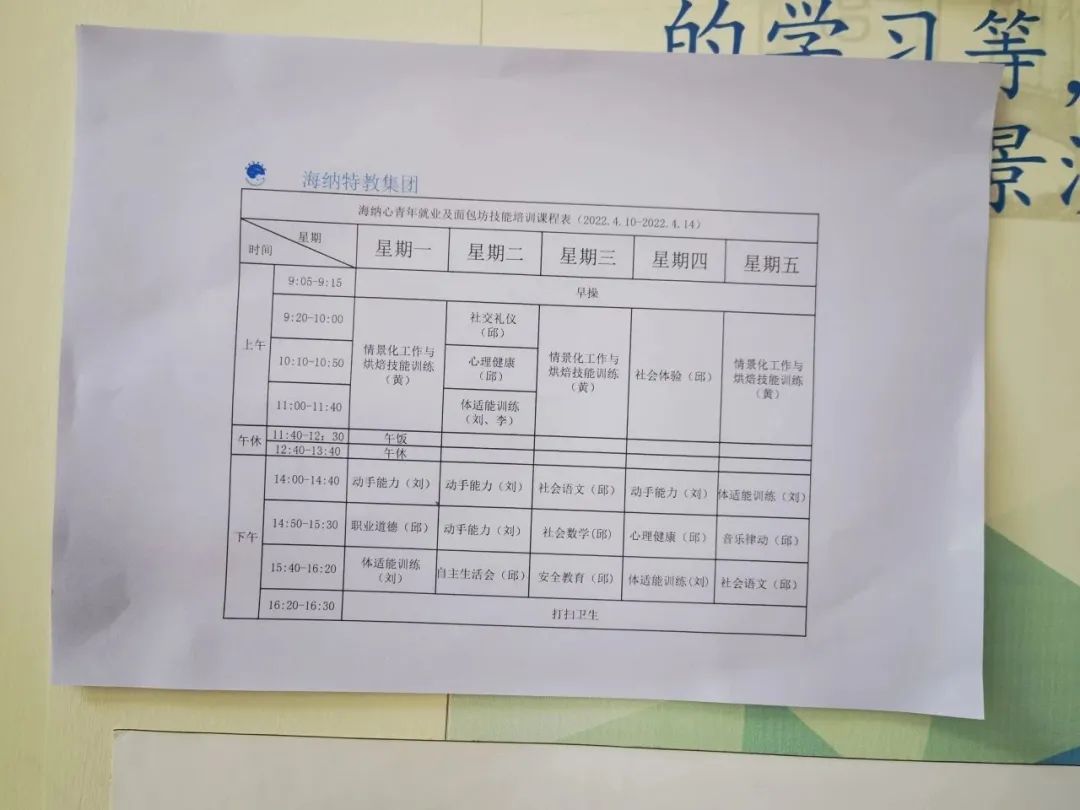 的学习等，
景
海纳特教集团
海纳心青年就业及面包坊技能培训课程表（2022.4.10-2022.4.14）
星期
时间
星期一 星期二 星期三 星期四 星期五
上午
9:05-9:15 早操
9:20-10:00
社交礼仪
（邱）
情景化工作与
烘焙技能训练
（黄）
10:10-10:50
心理健康
（邱）
情景化工作与
烘焙技能训练
（黄）
社会体验（邱）
情景化工作与
烘焙技能训练
（黄）
11:00-11:40
体适能训练
（刘、李）
午休
11:40-12：30 午饭
12:40-13:40 午休
下午
14:00-14:40 动手能力（刘） 动手能力（刘） 社会语文（邱） 动手能力（刘） 体适能训练（刘）
14:50-15:30 职业道德（邱） 动手能力（刘） 社会数学(邱) 心理健康（邱） 音乐律动（邱）
15:40-16:20
体适能训练
（刘）
自主生活会（邱） 安全教育（邱） 体适能训练(刘) 社会语文（邱）
16:20-16:30 打扫卫生